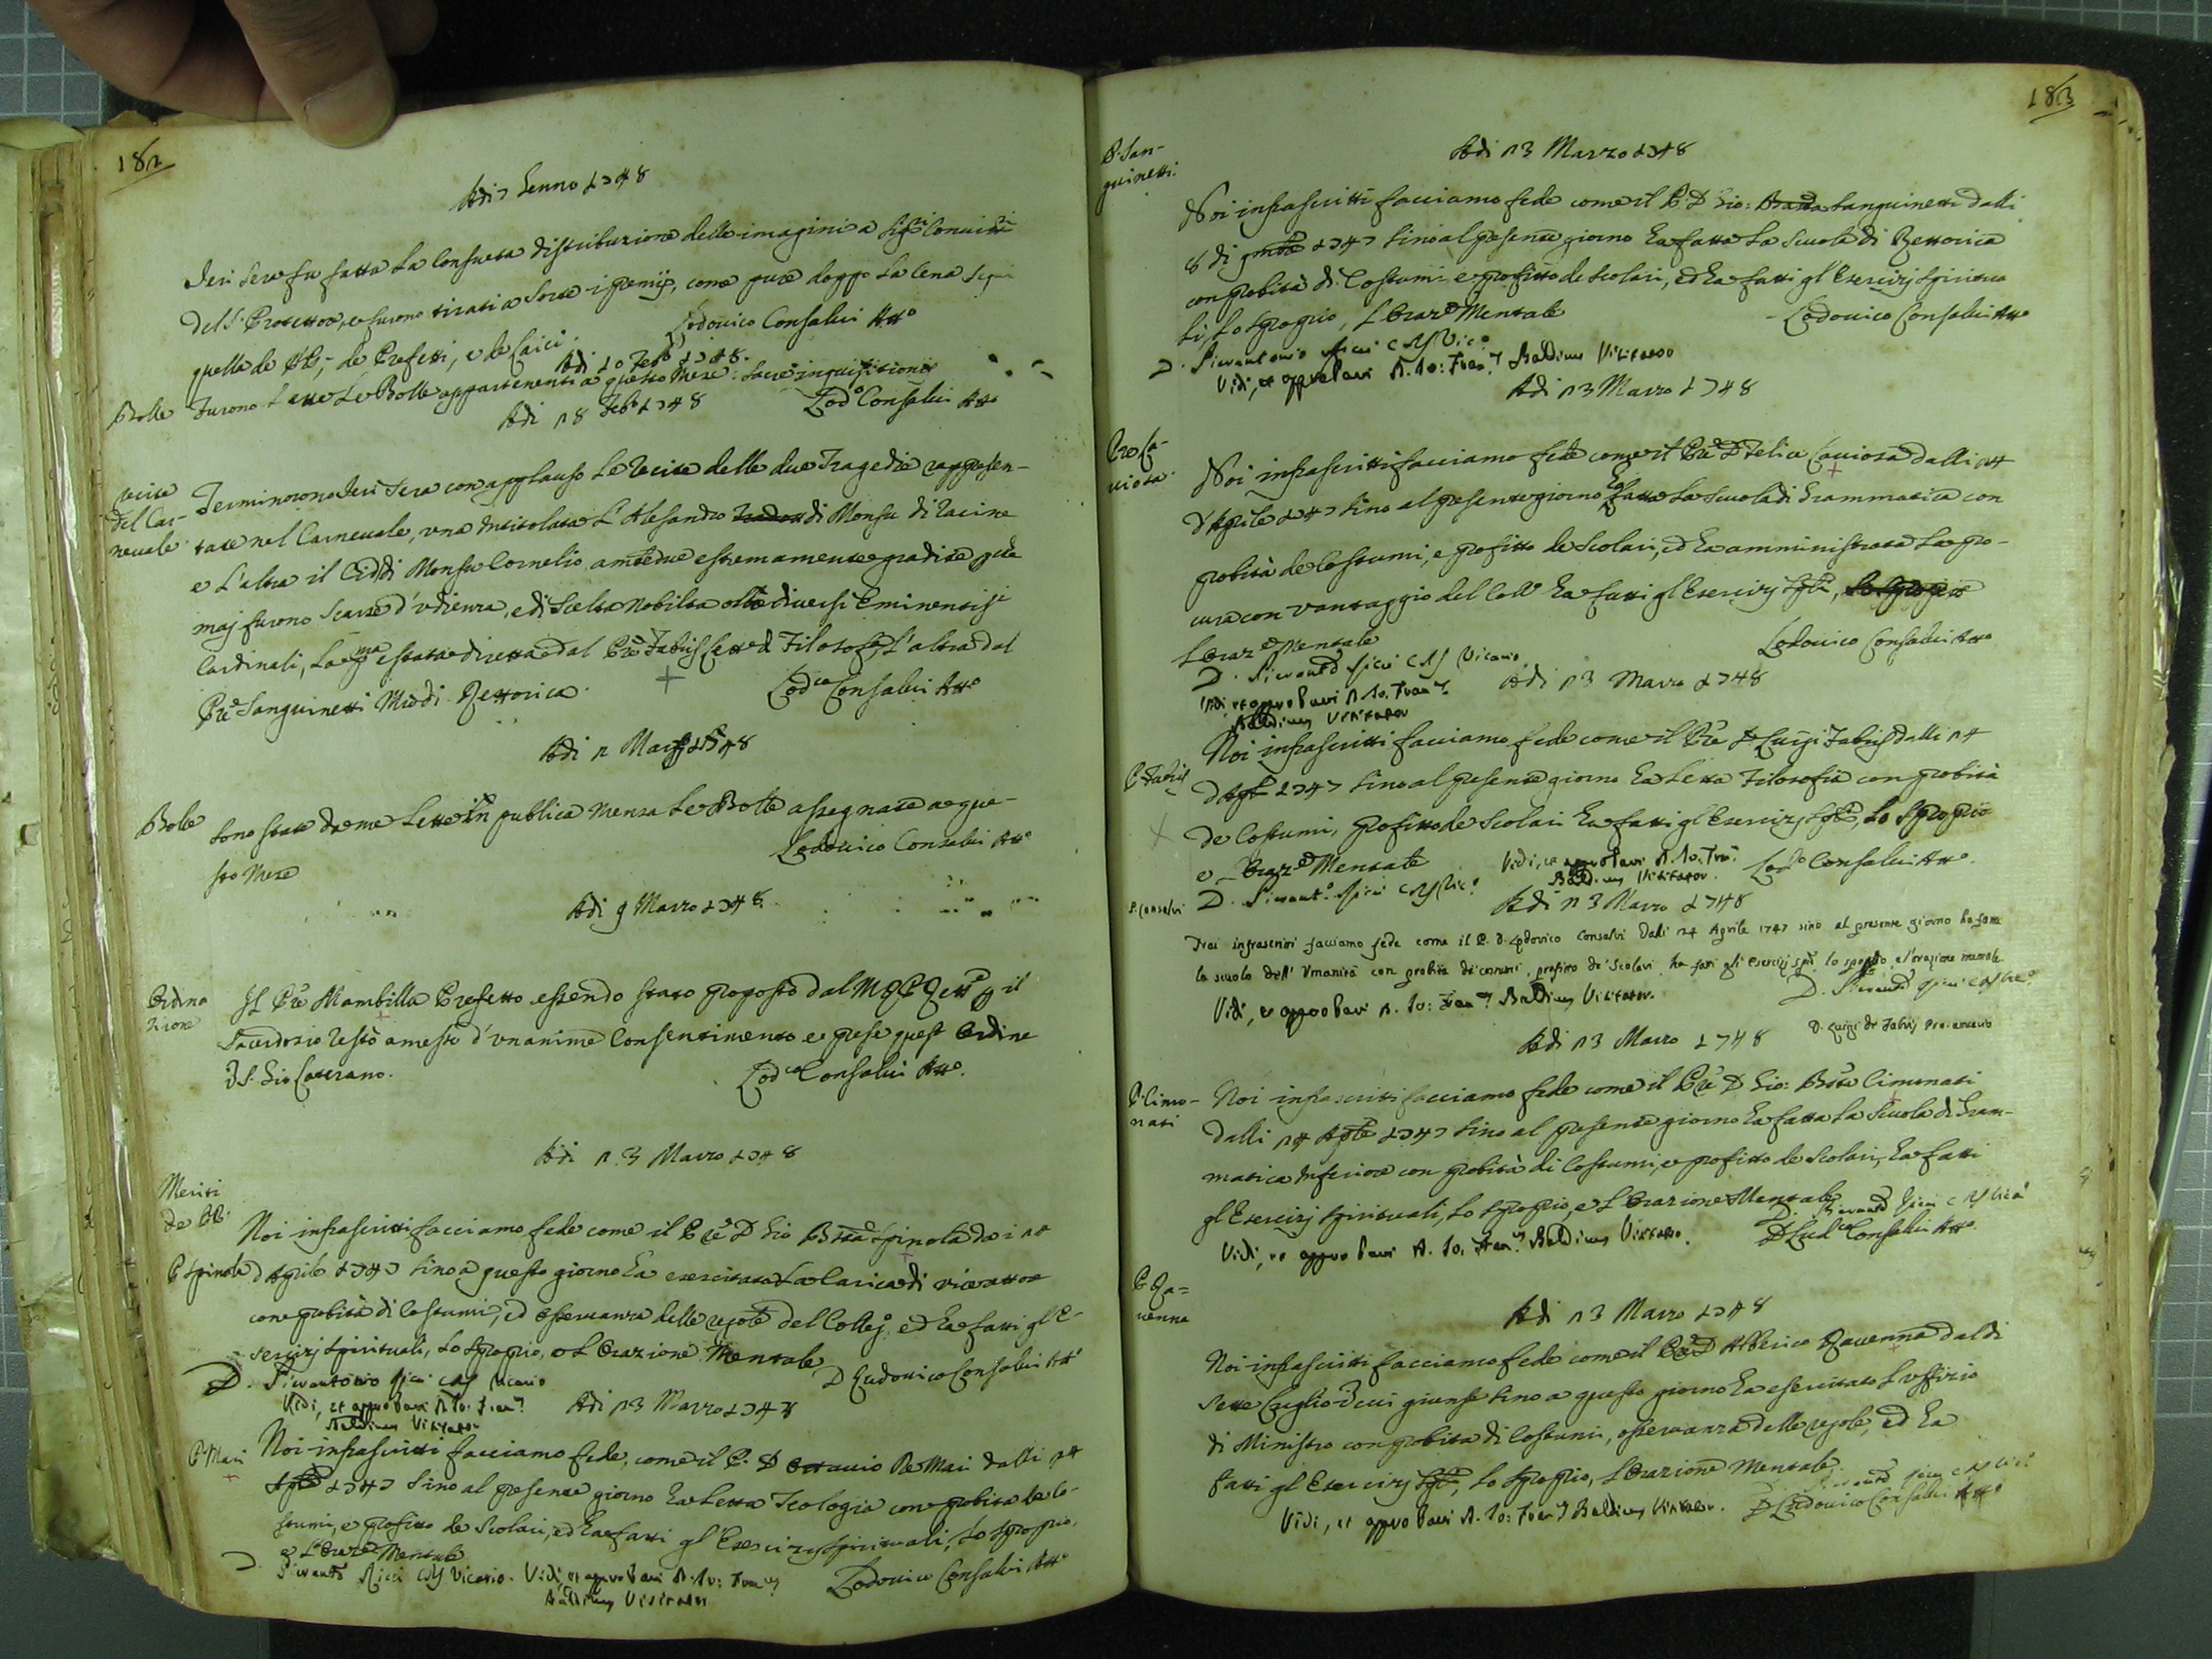 182
Adi 7 Genno 1748
Ieri sera fu fatta la consueta distribuzione delle imagini a Sigri Convitti
del S. Protettore, e furono tirati a sorte i premij, come pure doppo la Cena
quella de PP., de Prefetti, e de Laici.
Lodovico Consalvi Atto
Adi 10 Febb 1748.
Bolle
Furono lette le Bolle appartenenti a questo Mese: Sacre inquisitionis
Lodo Consalvi Atto
Adi 28 Feb 1748
recite
del Car-
nevale
Terminorono Ieri Sera con applauso le recite delle due Tragedie rappresen-
tate nel Carnevale, una intitolata L'Alesandro di Monsu di Racine
e L'altra il Cid di Monsu Cornelio, ambedue estremamente gradite
maj furono scarse d'udienza, e di scelta nobiltà oltre diversi Eminentissi
Cardinali, la pma e stata diretta dal Pre Fabrij Lettre di Filosofia, L'altra dal
Pre Sanguinetti Mro di Rettorica.
Lodco Consalvi Atto
Adi 2 Marzo 1748
Bolle
Sono state da me Lette in publica Mensa le Bolle assegnate a que-
sto Mese
Lodovico Consalvi Atto
Adi 9 Marzo 1748
Ordina
zione
Il Pre Mambilla Prefetto essendo stato proposto dal M R P Rettre p il
Sacerdozio restò amesso d'unanime consentimento e prese quest Ordine
S. Gio Laterano.
Lodco Consalvi Atto.
Adi 23 Marzo 1748
Meriti
de PP.
P Spinola
Noi infrascritti facciamo fede come il Pre D Gio Btta Spinola da i 24
d Aprile 1747 sino a questo giorno ha esercitata la Carica di vicerettore
con probità di costumi, ed osservanza delle regole del Colleg, ed ha fatti gl'E-
sercizj Spirituali, lo Sproprio, e L'Orazione Mentale
D Ludovico Consalvi Atto
D. Pierantonio Ricci CRS Vicario
Vidi, et approbavi D. Io: Franc
Baldinus Visitator
Adi 23 Marzo 1748
P Mari
Noi infrascritti facciamo fede, come il P. D Ottavio De Mari dalli 24
Aple 1747 sino al presente giorno ha Letta Teologia con probità de co-
stumi, e profitto de Scolari, ed ha fatti gl'Esercizj Spirituali, lo Sproprio,
e L'Orazne Mentale
D. Pieranto Ricci CRS Vicario. Vidi, et approbavi D. Io: Franc
Baldinus Visitator
Lodovico Consalvi Atto
183
Adi 23 Marzo 1748
P. San-
guinetti.
Noi infrascritti facciamo fede come il P D Gio: Sanguinetti dalli
8 di 1747 sino al presente giorno ha fatta la Scuola di Rettorica
con probità di Costumi e profitto de Scolari, ed ha fatti gl'Esercizj Spiritua
li, lo Sproprio, L'Orazne Mentale
Lodovico Consalvi Atto
D. Pierantonio Ricci CRS Vico
Vidi, et approbavi D. Io: Franc Baldinus Visitator
Adi 23 Marzo 1748
Noi infrascritti facciamo fede come il Pre D Felice dalli 24
d'Aprile 1747 sino al presente giorno ha fatta la Scuola di Grammatica con
probità de Costumi, e profitto de Scolari, ed ha amministrata la pro-
cura con vantaggio del Collo ha fatti gl'Esercizj Spli, lo Sproprio
L'Orazne Mentale
Lodovico Consalvi Atto
D. Pieranto Ricci CRS Vicario
Vidi, et approbavi D. Io. Franc
Baldinus Visitator
Adi 23 Marzo 1748
P Fabrij
Noi infrascritti facciamo fede come il Pre D Luigi Fabrij dalli 24
d Aple 1747 sino al presente giorno ha Letta Filosofia con probità
de Costumi, profitto de Scolari ha fatti gl'Esercizj Spli, Lo Sproprio
e Orazne Mentale
Vidi, et approbavi D. Io. Franc
Baldinus Visitator.
Lodco Consalvi Atto.
D. Pieranto Ricci CRS Vico
Adi 23 Marzo 1748
P. Consalvi
Noi infrascritti facciamo fede come il P. D. Lodovico Consalvi Dalli 24 Aprile 1747 sino al presente giorno ha fatta
la scuola dell'Umanità con probità de' costumi, profitto de' Scolari, ha fatti gli esercizj spli, lo sproprio, e l'orazione mentale
D. Pieranto Ricci CRS Vico
Vidi, et approbavi D. Io: Franc Baldinus Visitator.
D. Luigi de Fabrij Proattuario
Adi 23 Marzo 1748
P. Cimo-
nati
Noi infrascritti facciamo fede come il Pre D Gio: Btta Cimonati
dalli 24 Aple 1747 sino al presente giorno ha fatta la Scuola di Gram-
matica Inferiore con probità di Costumi, e profitto de Scolari, ha fatti
gl'Esercizj Spirituali, lo Sproprio, e L'Orazione Mentale
D. Pieranto Ricci CRS Vico
Vidi, et approbavi D. Io. Franc Baldinus Visitator.
D Ludco Consalvi Atto
P Ra=
venna
Adi 23 Marzo 1748
Noi infrascritti facciamo fede come il Pre D Alberico Ravenna dal di
sette Luglio in cui giunse sino a questo giorno ha esercitato L'uffizio
di Ministro con probità di Costumi, osservanza delle regole, ed ha
fatti gl'Esercizj Spli, lo Sproprio, L'Orazione Mentale
D. Pieranto Ricci CRS Vico
Vidi, et approbavi D. Io: Franc Baldinus Visitator.
D Ludovico Consalvi Atto